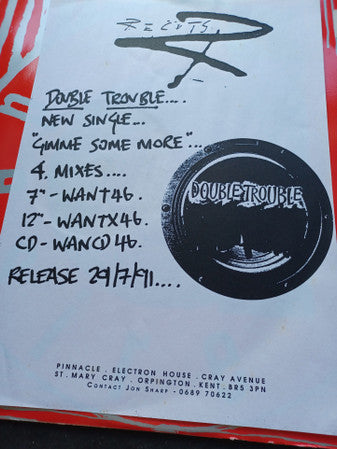 RECUTS
DOUBLE TROUBLE....
NEW SINGLE...
"GIMME SOME MORE"...
4. MIXES....
7"- WANT46.
12"- WANTX46.
CD- WANCD46.
RELEASE 29/7/91....
DOUBLE TROUBLE
PINNACLE . ELECTRON HOUSE . CRAY AVENUE
ST. MARY CRAY . ORPINGTON . KENT . BR5 3PN
CONTACT JON SHARP - 0689 70622